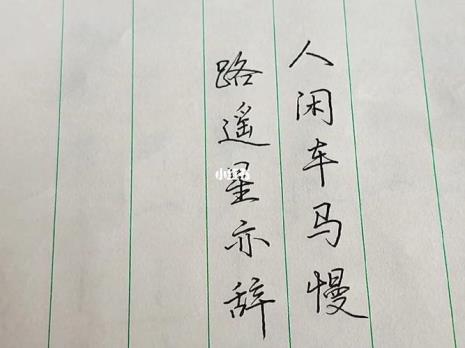 人闲车马慢
路遥星亦辞
小红书